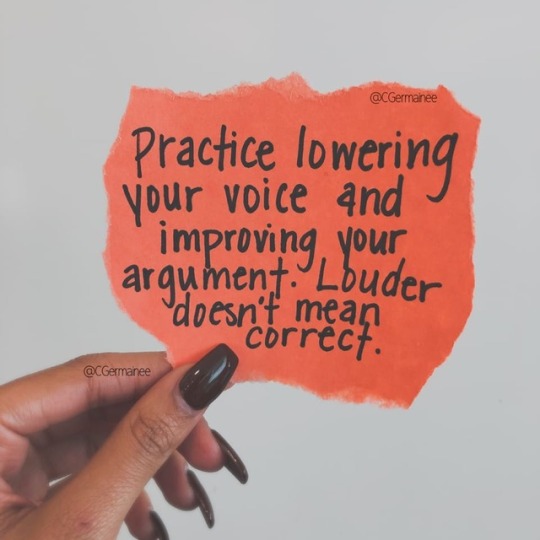 @CGermainee
Practice lowering
your voice and
improving your
argument. Louder
doesn't mean
correct.
@CGermainee